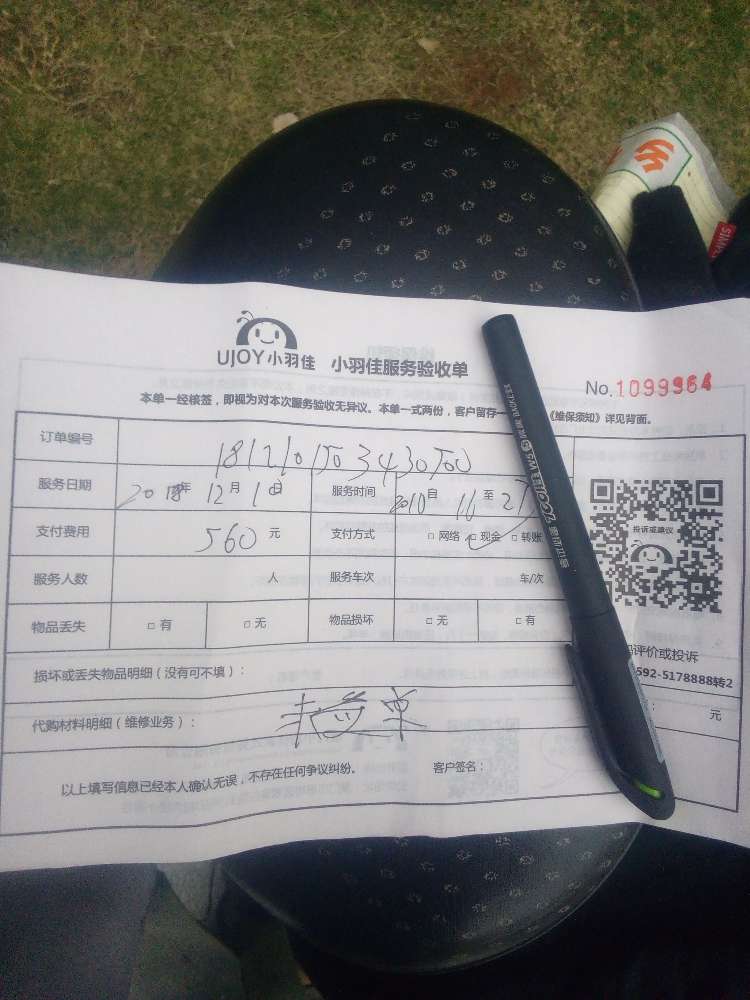 UJOY小羽佳 小羽佳服务验收单
No.1099964
本单一经核签，即视为对本次服务验收无异议。本单一式两份，客户留存一 《维保须知》详见背面。
订单编号
服务日期 2018年 12月 1日 服务时间 自 至
支付费用 560 元 支付方式 □网络 □现金 □转账
投诉或建议
服务人数 人 服务车次 车/次
物品丢失 □有 □无 物品损坏 □无 □有
评价或投诉
592-5178888转2
损坏或丢失物品明细（没有可不填）：
代购材料明细（维修业务）： 元
以上填写信息已经本人确认无误，不存在任何争议纠纷。 客户签名：